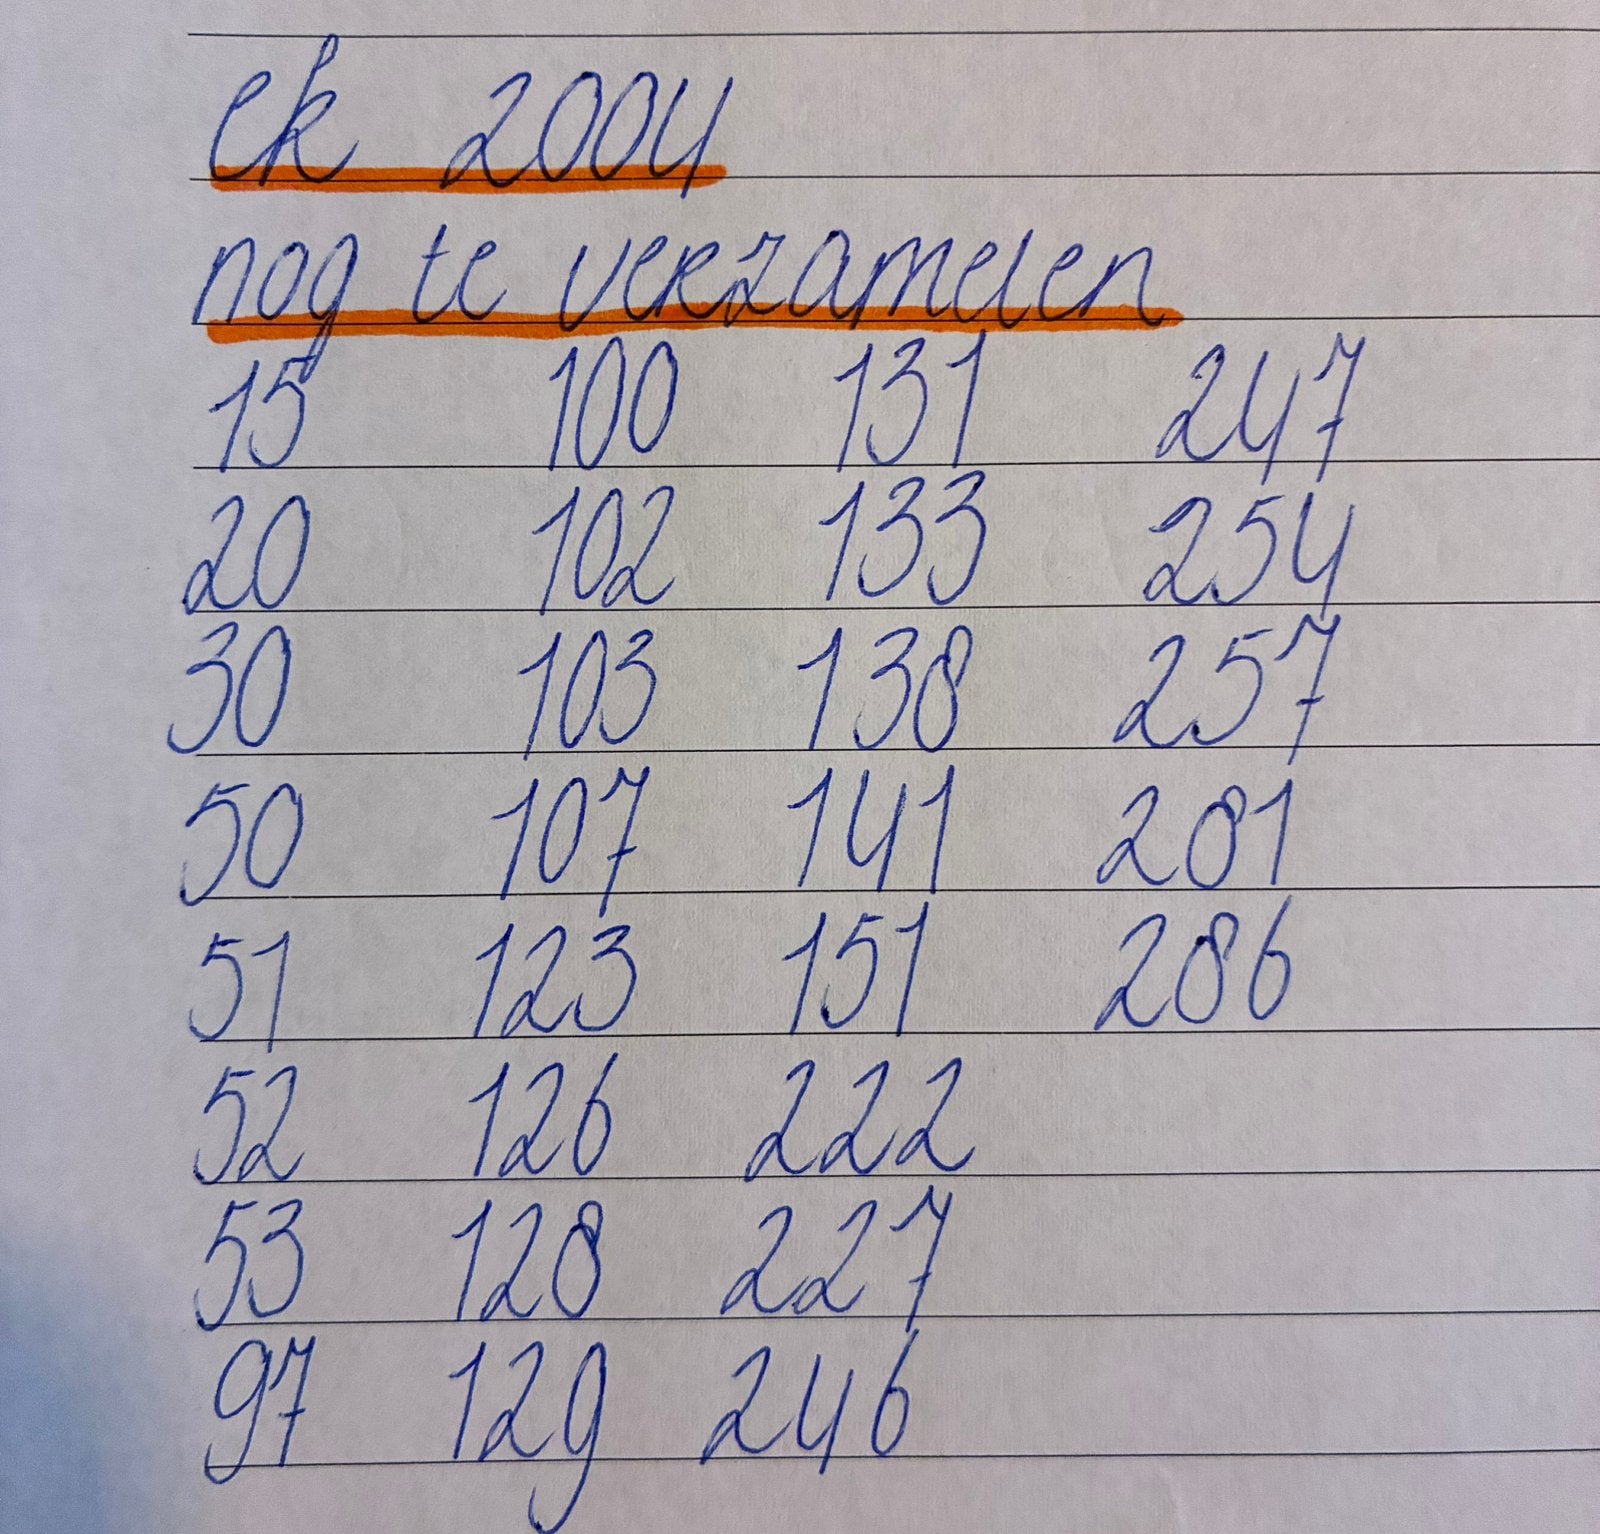 ek 2004
nog te verzamelen
15 100 131 247
20 102 133 254
30 103 138 257
50 107 141 281
51 123 151 286
52 126 222
53 128 227
97 129 246